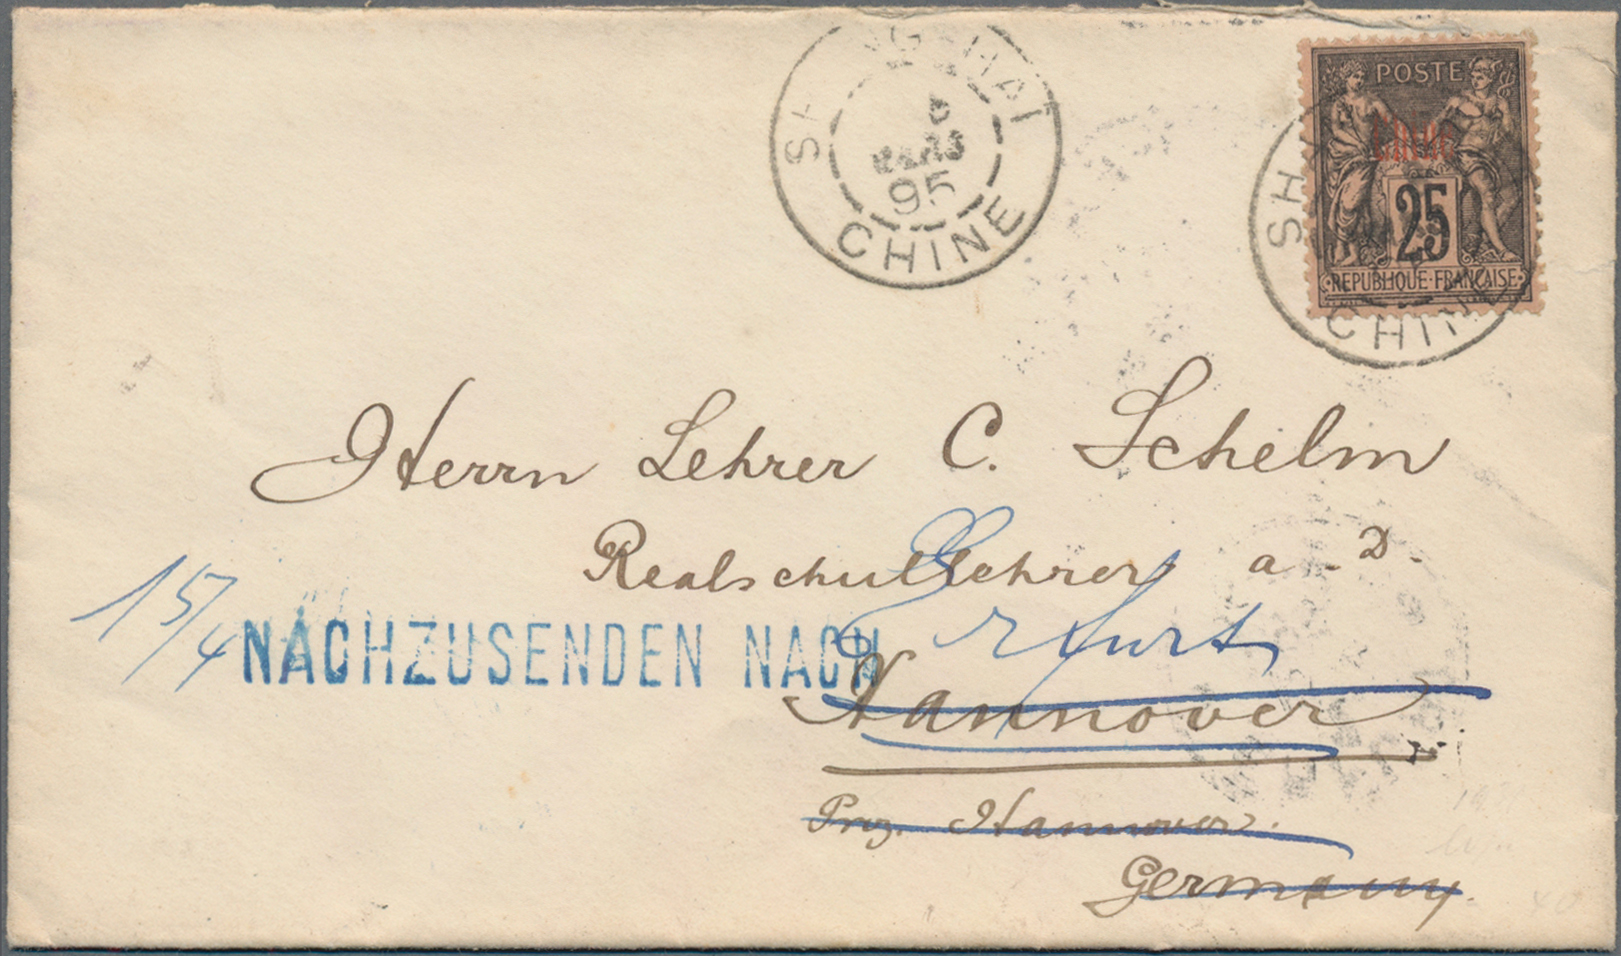 SHANG-HAI
5
MARS
95
CHINE
POSTE
Chine
25
REPUBLIQUE·FRANÇAISE
SHA
CHINE
Herrn Lehrer C. Schelm
Realschullehrer a. D.
15/4
NACHZUSENDEN NACH
Erfurt
Hannover
Prvz. Hannover.
Germany.